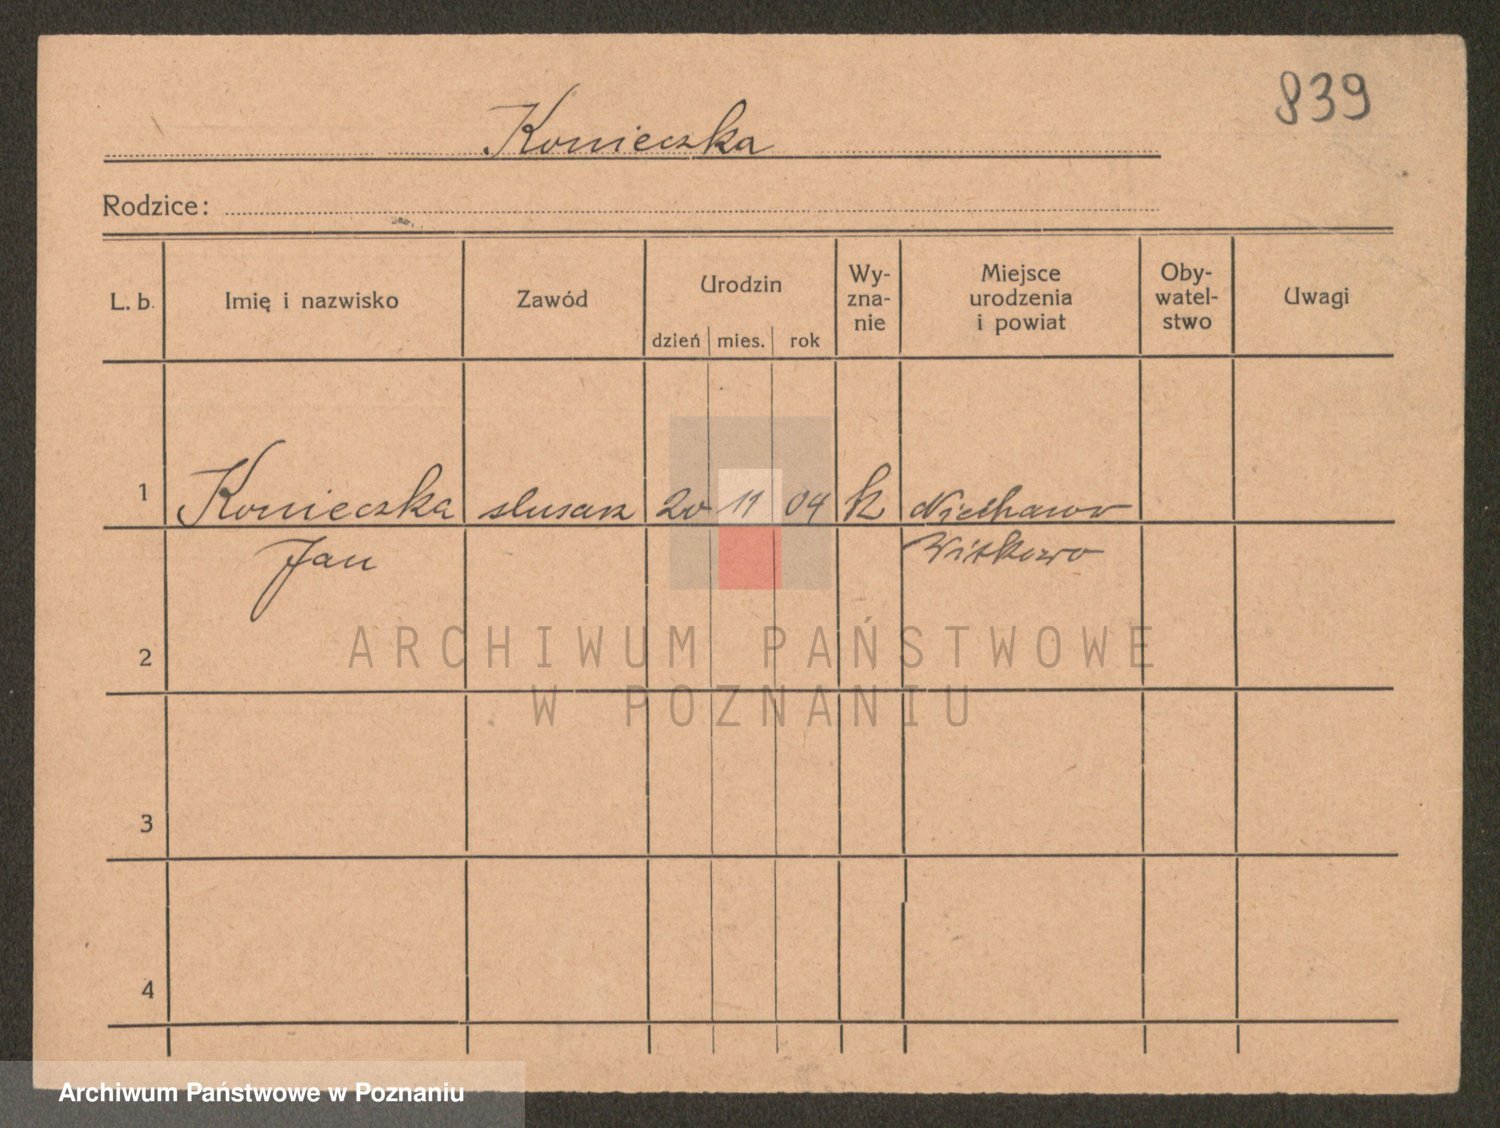 839
Konieczka
Rodzice:
L. b.
Imię i nazwisko
Zawód
Urodzin
dzień mies. rok
Wy-
zna-
nie
Miejsce
urodzenia
i powiat
Oby-
watel-
stwo
Uwagi
1 Konieczka slusarz 20 11 04 k
Jan Witkowo
2
3
4
ARCHIWUM PAŃSTWOWE
W POZNANIU
Archiwum Państwowe w Poznaniu